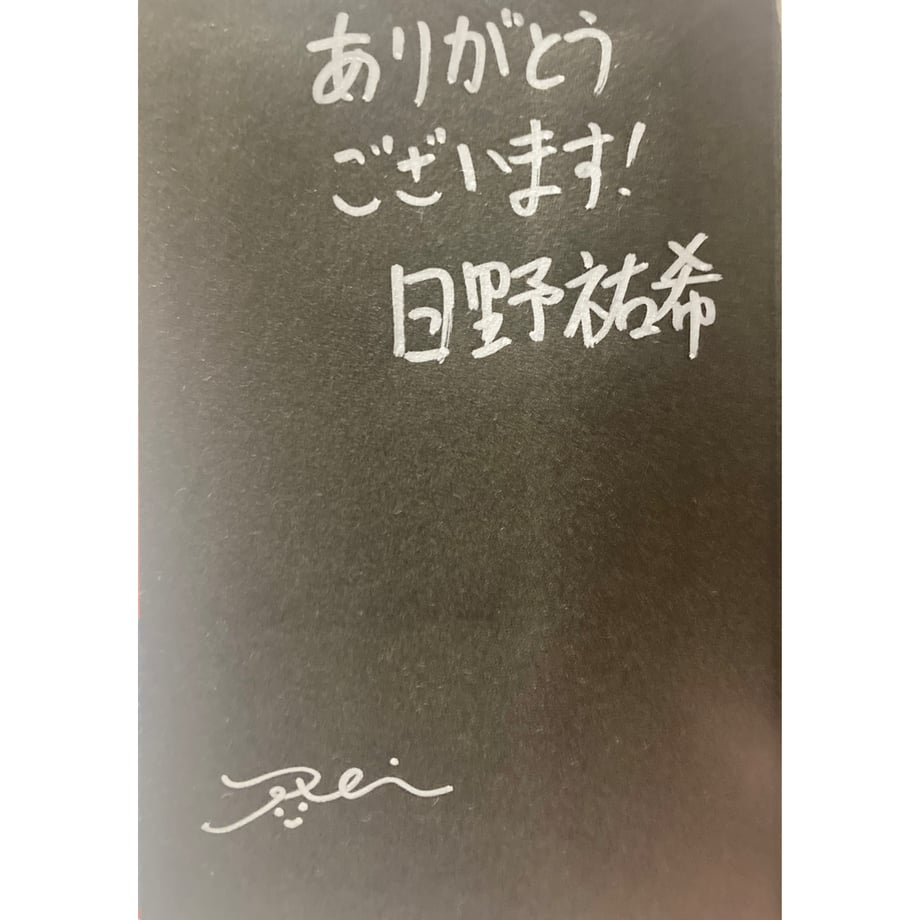 ありがとう
ございます!
日野祐希